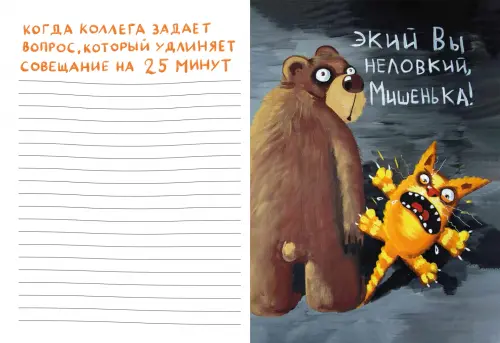 КОГДА КОЛЛЕГА ЗАДАЕТ
ВОПРОС, КОТОРЫЙ УДЛИНЯЕТ
СОВЕЩАНИЕ НА 25 МИНУТ
ЭКИЙ ВЫ
НЕЛОВКИЙ,
МИШЕНЬКА!